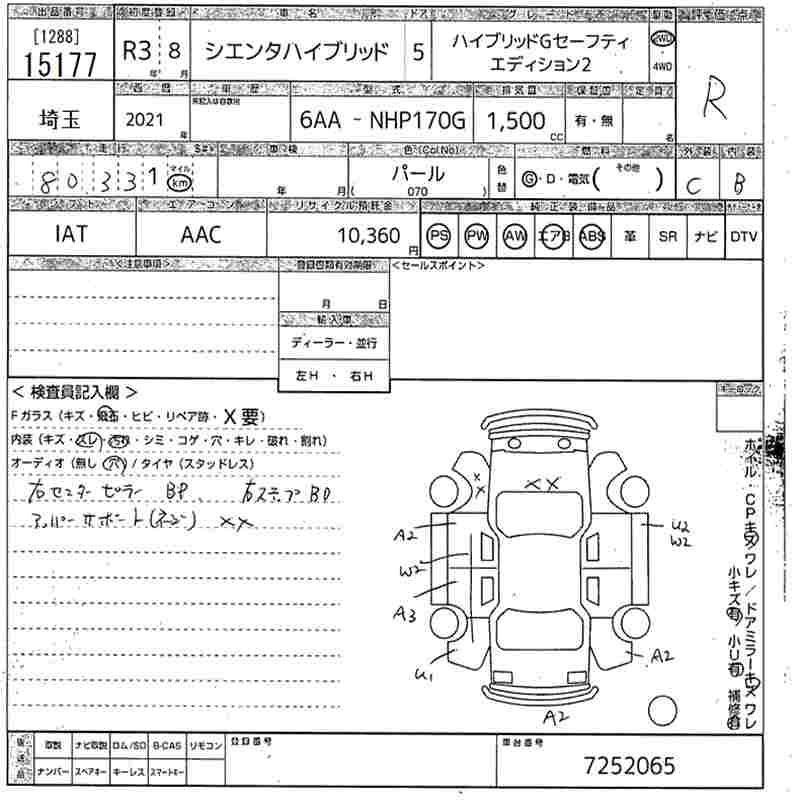 出品番号 初度登録 車名 形 ドア グレード 駆動 評価点
[1288]
15177 R3 8 シエンタハイブリッド 5 ハイブリッドGセーフティ 2WD
年 月 エディション2 4WD
R
西暦 車歴 型式 排気量 保証書 定員
埼玉 2021 年 未記入は自家用 6AA - NHP170G 1,500 CC 有・無 名
走行 車検 色(Col.No) 燃料 外装 内装
80,331 マイル km 年 月 パール (070) 色替 G・D・電気( その他 ) C B
シフト エアーコン リサイクル預託金 純正装備品
IAT AAC 10,360 円 PS PW AW エアB ABS 革 SR ナビ DTV
<注意事項> 登録書類有効期限 <セールスポイント>
月 日
輸入車
ディーラー・並行
左H ・ 右H
<検査員記入欄> キーロック
Fガラス(キズ・飛石・ヒビ・リペア跡・X要)
内装(キズ・スレ・汚れ・シミ・コゲ・穴・キレ・破れ・割れ)
オーディオ(無し・穴)/タイヤ(スタッドレス)
右センターピラー BP、 右ステップBP
アッパーサポート(ネジ) XX
X
X X
XX
A2
W2
A3
U1
U2
W2
A2
A2
ホイル・CPキズワレ/ドアミラーキズワレ
小キズ有 小U有 補修有
後送品 取説 ナビ取説 ロム/SD B-CAS リモコン 登録番号 車台番号
ナンバー スペアキー キーレス スマートキー 7252065